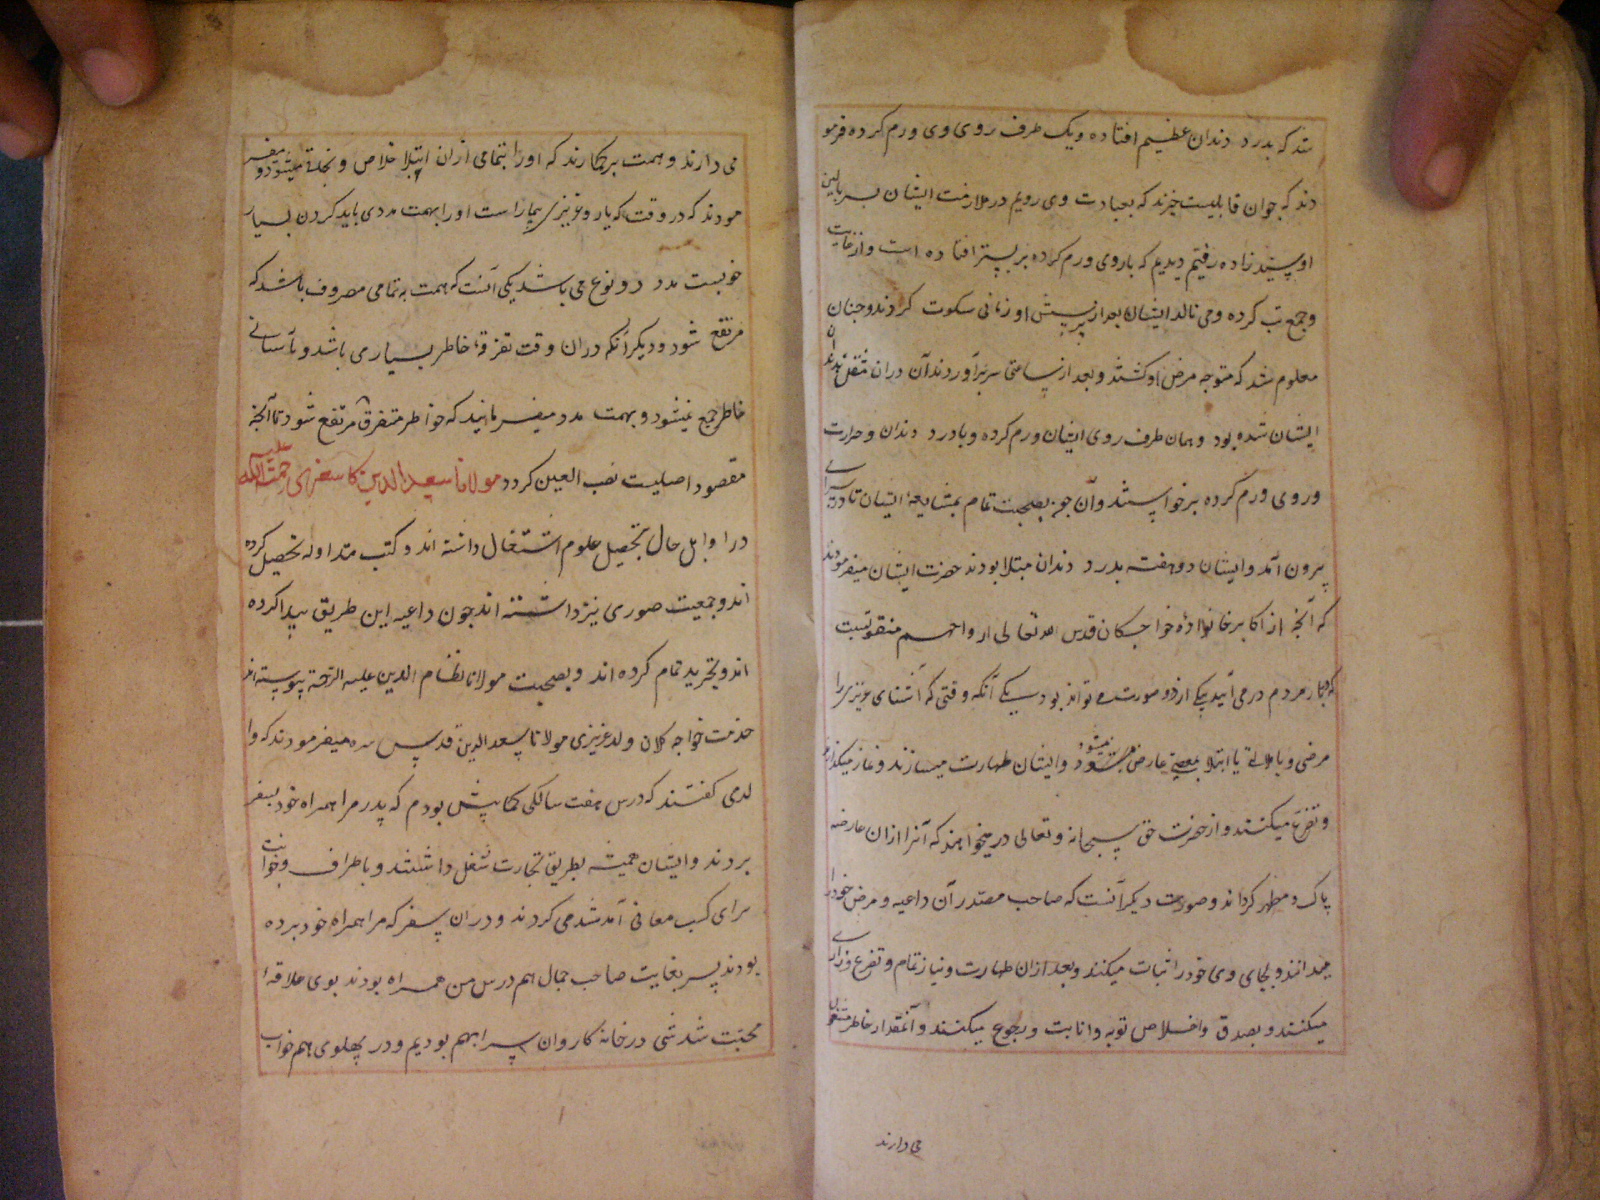 شد که بدرد دندان عظیم افتاده و یک طرف روی وی ورم کرده فرمو
دند که جوان قابلیست خیزند که بعیادت وی رویم در ملازمت ایشان بر بالین
او پسید زاده رفتیم دیدیم که با روی ورم کرده بر بستر افتاده است و از غایت
وجع تب کرده و می نالد ایشان بعد از پرسش او زمانی سکوت کردند و چنان
معلوم شد که متوجه مرض او گشتند و بعد از ساعتی سر برآوردند آن دران
ایشان شده بود و همان طرف روی ایشان ورم کرده و با درد دندان و حرارت
و روی ورم کرده برخواستند و آن بصحت تمام بمشایعهٔ ایشان تا در سرای
بیرون آمد و ایشان دو هفته بدرد دندان مبتلا بودند حضرت ایشان میفرمودند
که آنچه از اکابر خانوادهٔ خواجگان قدس الله تعالی ارواحهم منقولست
که بکار مردم در می آیند یکی از دو صورت می تواند بود یکی آنکه وقتی که آشنای عزیزی را
مرضی و یا ملالی یا ابتلا بمعصیت عارض میشود و ایشان طهارت میسازند و نماز میگذارند
و تضرع میکنند و از حضرت حق سبحانه و تعالی در میخواهند که آنرا ازان عارضه
پاک و مطهر گرداند و صورت دیگر آنست که صاحب مصدر آن داعیه و مرض خود را
میدانند و بجای وی خود را اثبات میکنند و بعد ازان طهارت و نیاز تمام و تضرع و زاری
میکنند و بصدق و اخلاص توبه و انابت و رجوع میکنند و آنمقدار خاطر مشغول
می دارند
می دارند و همت بر میگمارند که او را بتمامی ازان ابتلا خلاص و نجات میشود و میفر
مودند که در وقت که یار و عزیزی بیمار است او را بهمت مددی باید کردن بسیار
خوبست مدد دو نوع می باشد یکی آنست که همت به تمامی مصروف باشد که
مرتفع شود و دیگر آنکه دران وقت تفرقهٔ خاطر بسیار می باشد و بآسانی
خاطر جمع نمیشود و بهمت مدد میفرمایند که خواطر متفرق مرتفع شود تا آنچه
مقصود اصلیست نصب العین گردد مولانا سعد الدین کاشغری رحمت الله علیه
در اوایل حال بتحصیل علوم اشتغال داشته اند و کتب متداوله تحصیل کرده
اند و جمعیت صوری نیز داشته اند چون داعیه این طریق پیدا کرده
اند و تجرید تمام کرده اند و بصحبت مولانا نظام الدین علیه الرحمة پیوسته اند
خدمت خواجه کلان ولد عزیزی مولانا سعد الدین قدس سره میفرمودند که وا
لدی گفتند که در سن هفت سالگی کمابیش بودم که پدر مرا همراه خود بسفر
بردند و ایشان همیشه بطریق تجارت شغل داشتند و باطراف و جوانب
برای کسب معانی آمد شد می کردند و دران سفر که مرا همراه خود برده
بودند پسر بغایت صاحب جمال هم درس من همراه بودند بوی علاقهٔ
محبت شد شبی در خانهٔ کاروان سرا بهم بودیم و در پهلوی هم خواب